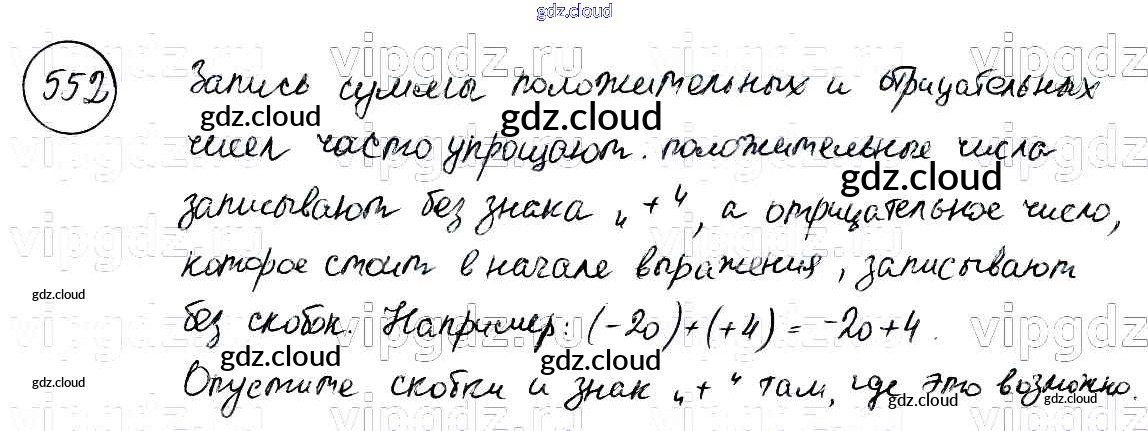 gdz.cloud
vipgdz.ru vipgdz.ru vipgdz
552 Запись суммы положительных и отрицательных
gdz.cloud gdz.cloud gdz.cloud
чисел часто упрощают. положительные числа
gdz.cloud gdz.cloud
записывают без знака „+“, а отрицательное число,
vipgdz.ru vipgdz.ru vipgdz
которое стоит в начале выражения, записывают
gdz.cloud
без скобок. Например: (-20)+(+4) = -20+4.
vipgdz.ru vipgdz.ru vipgdz
gdz.cloud gdz.cloud gdz.cloud
Опустите скобки и знак „+“ там, где это возможно.
gdz.cloud gdz.cloud gdz.cloud